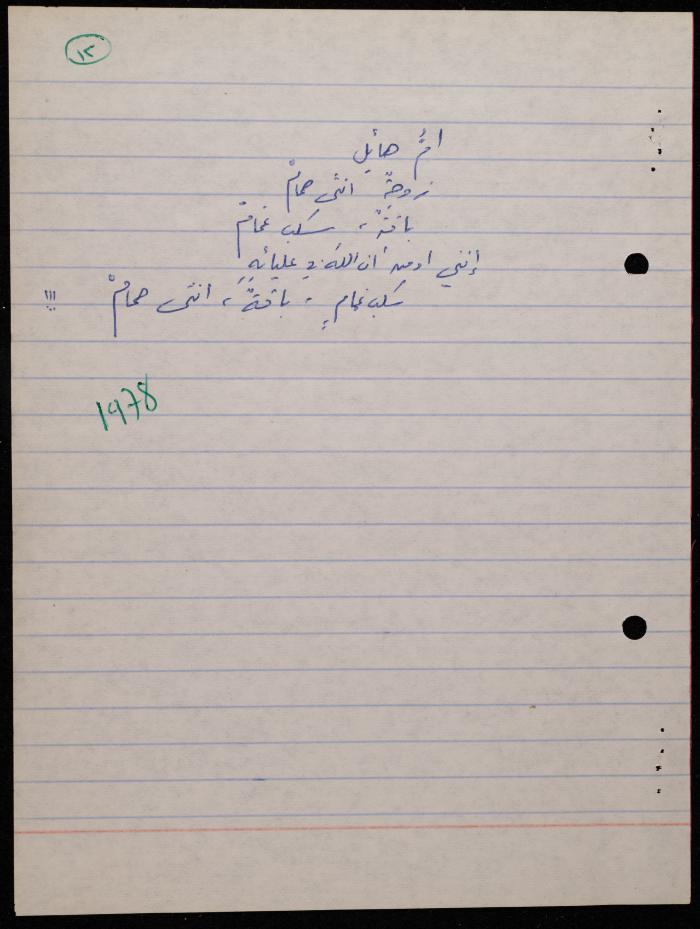 ١٢
امُّ هائِل
زوجةٌ انثى حمامْ
باقةٌ ، سكب غمامْ
إنني اومن أن الله في عليائهِ
سكب غمامٍ ، باقةٌ ، انثى حمامْ !!!
1978